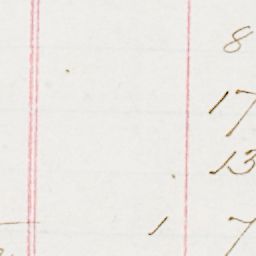 8
17
13
1 7